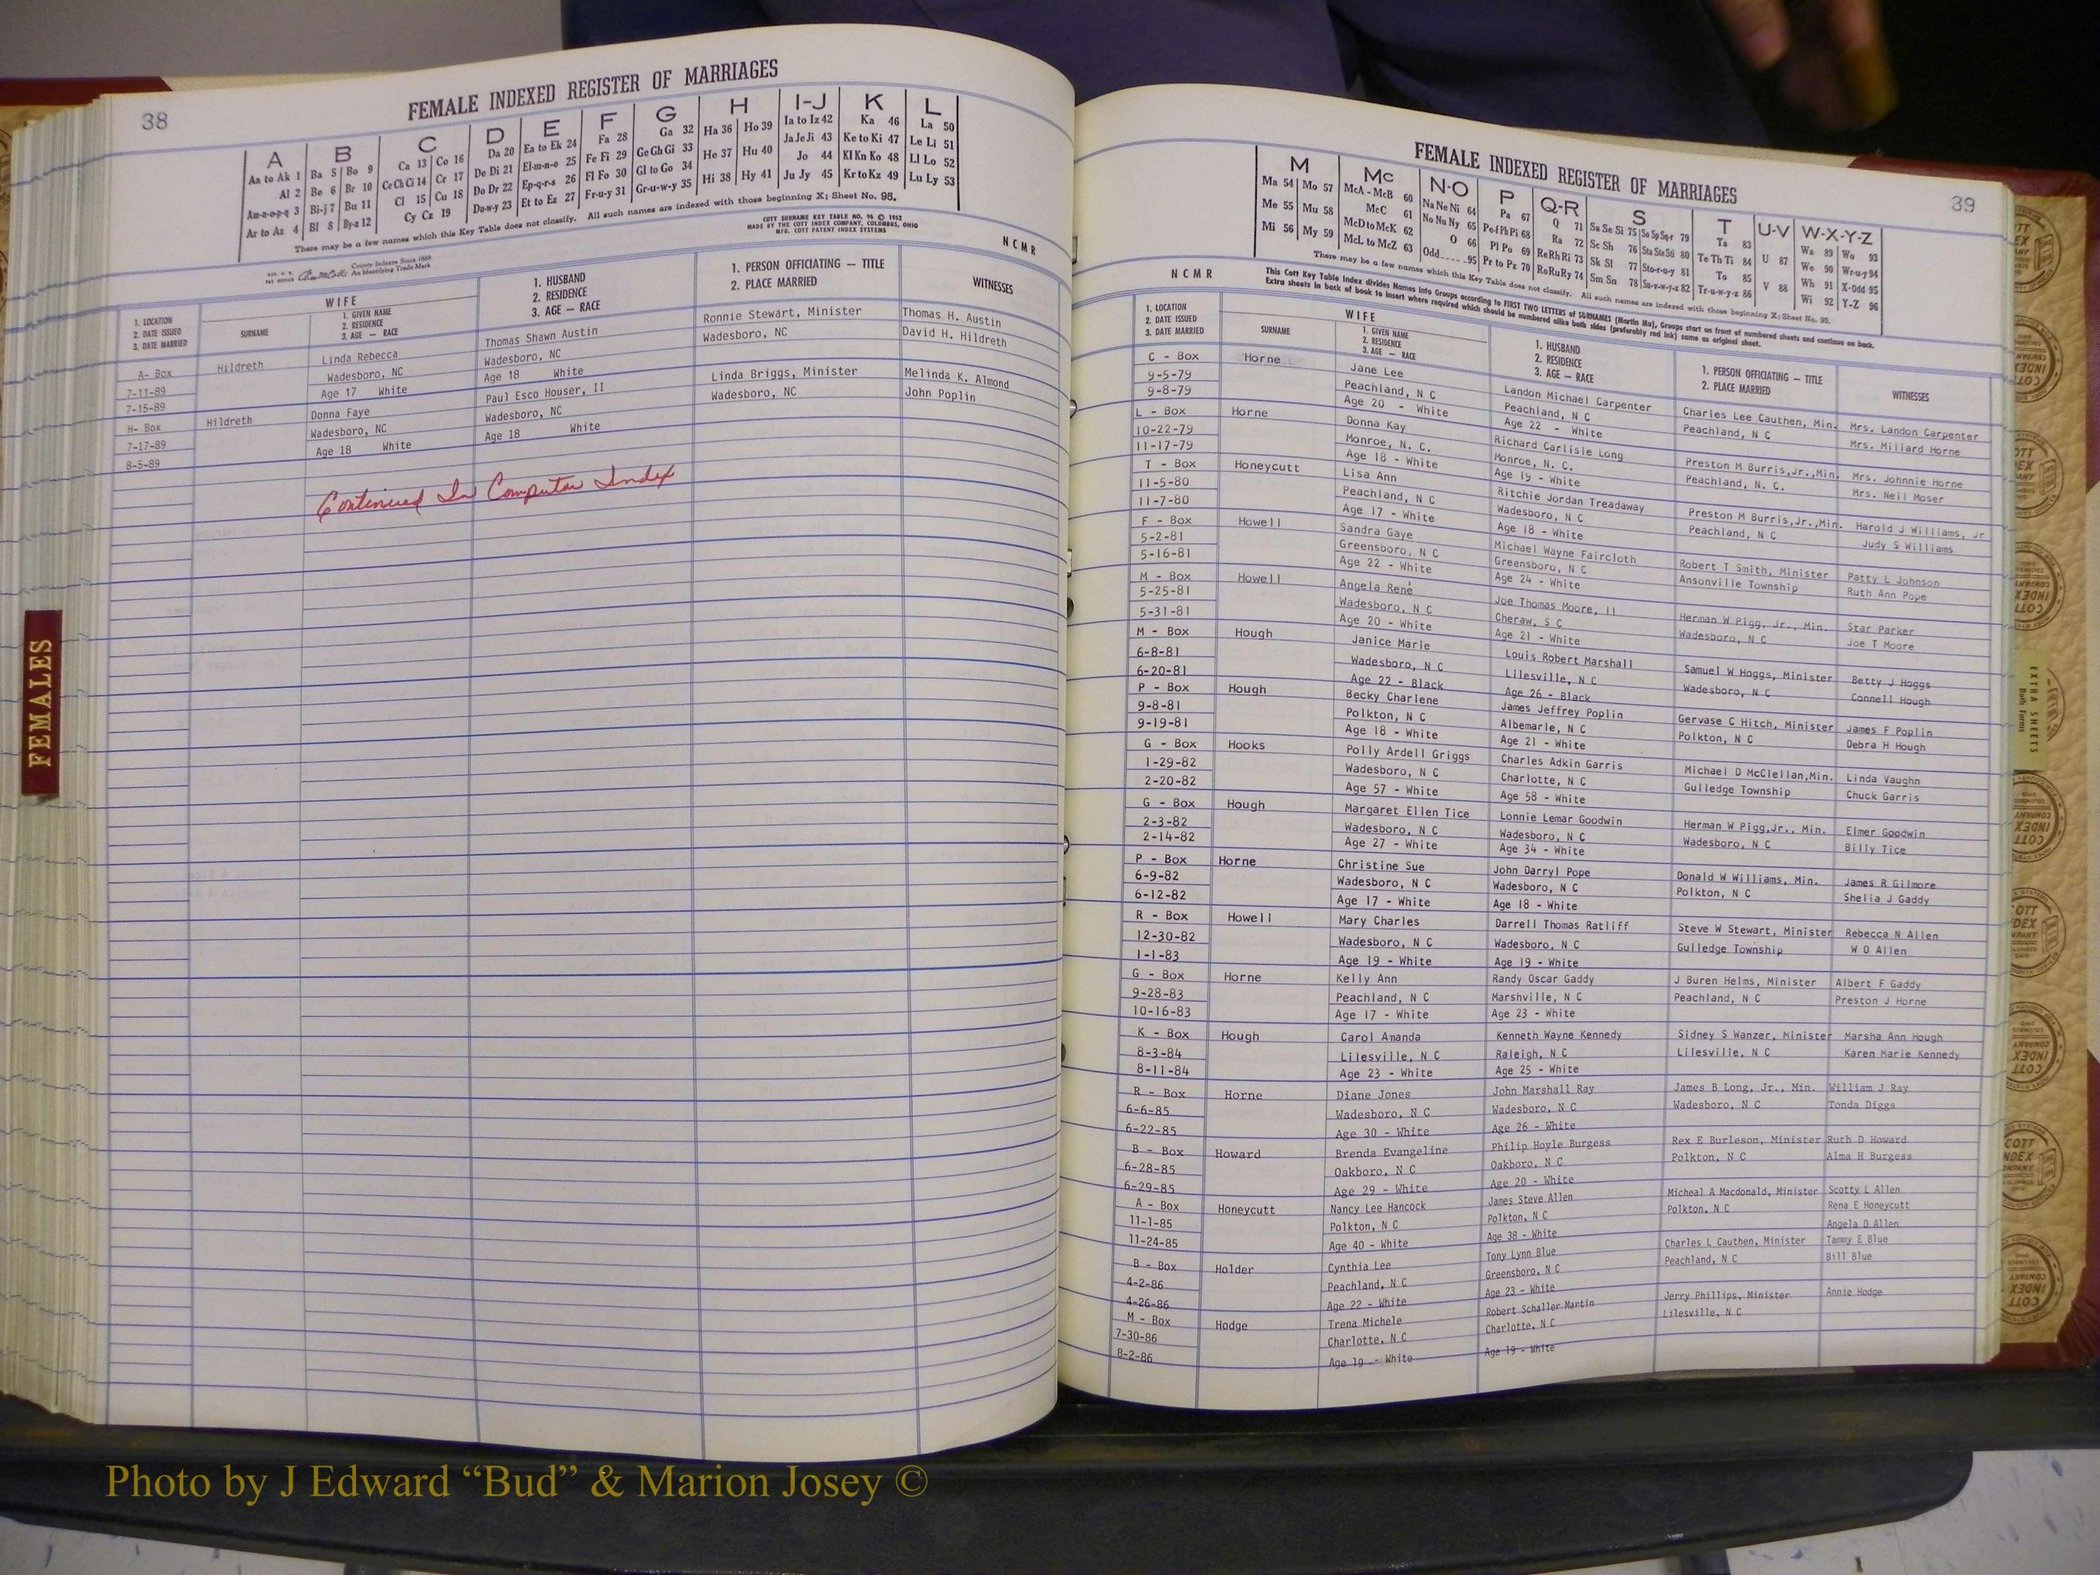 38
FEMALE INDEXED REGISTER OF MARRIAGES
A B C D E F G H I-J K L
Aa to Ak 1 Ba 5 Bo 9 Ca 13 Co 16 Da 20 Ea to Ek 24 Fa 28 Ga 32 Ha 36 Ho 39 Ia to Iz 42 Ka 46 La 50
Al 2 Be 6 Br 10 Ce Ch Ci 14 Cr 17 De Di 21 El-m-n-o 25 Fe Fi 29 Ge Gh Gi 33 He 37 Hu 40 Ja Je Ji 43 Ke to Ki 47 Le Li 51
Am-n-o-p-q 3 Bi-j 7 Bu 11 Cl 15 Cu 18 Do Dr 22 Ep-q-r-s 26 Fl Fo 30 Gl to Go 34 Hi 38 Hy 41 Jo 44 Kl Kn Ko 48 Ll Lo 52
Ar to Az 4 Bl 8 By-z 12 Cy Cz 19 Du-w-y 23 Et to Ez 27 Fr-u-y 31 Gr-u-w-y 35 Ju Jy 45 Kr to Kz 49 Lu Ly 53
There may be a few names which this Key Table does not classify. All such names are indexed with those beginning X; Sheet No. 95.
COTT SURNAME KEY TABLE NO. 96 © 1952
MADE BY THE COTT INDEX COMPANY, COLUMBUS, OHIO
MFG. COTT PATENT INDEX SYSTEMS
County Indexes Since 1888
An Identifying Trade Mark
N C M R
1. LOCATION
2. DATE ISSUED
3. DATE MARRIED
WIFE
SURNAME
1. GIVEN NAME
2. RESIDENCE
3. AGE — RACE
1. HUSBAND
2. RESIDENCE
3. AGE — RACE
1. PERSON OFFICIATING — TITLE
2. PLACE MARRIED
WITNESSES
A- Box Hildreth Linda Rebecca Thomas Shawn Austin Ronnie Stewart, Minister Thomas H. Austin
7-11-89 Wadesboro, NC Wadesboro, NC Wadesboro, NC David H. Hildreth
7-15-89 Age 17 White Age 18 White
H- Box Hildreth Donna Faye Paul Esco Houser, II Linda Briggs, Minister Melinda K. Almond
7-17-89 Wadesboro, NC Wadesboro, NC Wadesboro, NC John Poplin
8-5-89 Age 18 White Age 18 White
Continued In Computer Index
FEMALES
39
FEMALE INDEXED REGISTER OF MARRIAGES
M Mc N-O P Q-R S T U-V W-X-Y-Z
Ma 54 Mo 57 McA - McB 60 Na Ne Ni 64 Pa 67 Q 71 Sa Se Si 75 So Sp Sq-r 79 Ta 83 U 87 Wa 89 Wo 93
Me 55 Mu 58 McC 61 No Nu Ny 65 Pe-f Ph Pi 68 Ra 72 Sc Sh 76 Sta Ste Sti 80 Te Th Ti 84 V 88 We 90 Wr-u-y 94
Mi 56 My 59 McD to McK 62 O 66 Pl Po 69 Re Rh Ri 73 Sk Sl 77 Sto-r-u-y 81 To 85 Wh 91 X-Odd 95
McL to McZ 63 Odd 95 Pr to Pz 70 Ro Ru Ry 74 Sm Sn 78 Su-v-w-y-z 82 Tr-u-w-y-z 86 Wi 92 Y-Z 96
There may be a few names which this Key Table does not classify. All such names are indexed with those beginning X; Sheet No. 95.
This Cott Key Table Index divides Names into Groups according to FIRST TWO LETTERS of SURNAMES (Martin Ma), Groups start on front of numbered sheets and continue on back.
Extra sheets in back of book to insert where required which should be numbered alike both sides (preferably red ink) same as original sheet.
N C M R
1. LOCATION
2. DATE ISSUED
3. DATE MARRIED
WIFE
SURNAME
1. GIVEN NAME
2. RESIDENCE
3. AGE — RACE
1. HUSBAND
2. RESIDENCE
3. AGE — RACE
1. PERSON OFFICIATING — TITLE
2. PLACE MARRIED
WITNESSES
C - Box Horne Jane Lee Landon Michael Carpenter Charles Lee Cauthen, Min. Mrs. Landon Carpenter
9-5-79 Peachland, N C Peachland, N C Peachland, N C Mrs. Millard Horne
9-8-79 Age 20 - White Age 22 - White
L - Box Horne Donna Kay Richard Carlisle Long Preston M Burris,Jr.,Min. Mrs. Johnnie Horne
10-22-79 Monroe, N. C. Monroe, N. C. Peachland, N. C. Mrs. Neil Moser
11-17-79 Age 18 - White Age 19 - White
T - Box Honeycutt Lisa Ann Ritchie Jordan Treadaway Preston M Burris,Jr.,Min. Harold J Williams, Jr
11-5-80 Peachland, N C Wadesboro, N C Peachland, N C Judy S Williams
11-7-80 Age 17 - White Age 18 - White
F - Box Howell Sandra Gaye Michael Wayne Faircloth Robert T Smith, Minister Patty L Johnson
5-2-81 Greensboro, N C Greensboro, N C Ansonville Township Ruth Ann Pope
5-16-81 Age 22 - White Age 24 - White
M - Box Howell Angela René Joe Thomas Moore, II Herman W Pigg, Jr., Min. Star Parker
5-25-81 Wadesboro, N C Cheraw, S C Wadesboro, N C Joe T Moore
5-31-81 Age 20 - White Age 21 - White
M - Box Hough Janice Marie Louis Robert Marshall Samuel W Hoggs, Minister Betty J Hoggs
6-8-81 Wadesboro, N C Lilesville, N C Wadesboro, N C Connell Hough
6-20-81 Age 22 - Black Age 26 - Black
P - Box Hough Becky Charlene James Jeffrey Poplin Gervase C Hitch, Minister James F Poplin
9-8-81 Polkton, N C Albemarle, N C Polkton, N C Debra H Hough
9-19-81 Age 18 - White Age 21 - White
G - Box Hooks Polly Ardell Griggs Charles Adkin Garris Michael D McClellan,Min. Linda Vaughn
1-29-82 Wadesboro, N C Charlotte, N C Gulledge Township Chuck Garris
2-20-82 Age 57 - White Age 58 - White
G - Box Hough Margaret Ellen Tice Lonnie Lemar Goodwin Herman W Pigg,Jr., Min. Elmer Goodwin
2-3-82 Wadesboro, N C Wadesboro, N C Wadesboro, N C Billy Tice
2-14-82 Age 27 - White Age 34 - White
P - Box Horne Christine Sue John Darryl Pope Donald W Williams, Min. James R Gilmore
6-9-82 Wadesboro, N C Wadesboro, N C Polkton, N C Shelia J Gaddy
6-12-82 Age 17 - White Age 18 - White
R - Box Howell Mary Charles Darrell Thomas Ratliff Steve W Stewart, Minister Rebecca N Allen
12-30-82 Wadesboro, N C Wadesboro, N C Gulledge Township W O Allen
1-1-83 Age 19 - White Age 19 - White
G - Box Horne Kelly Ann Randy Oscar Gaddy J Buren Helms, Minister Albert F Gaddy
9-28-83 Peachland, N C Marshville, N C Peachland, N C Preston J Horne
10-16-83 Age 17 - White Age 23 - White
K - Box Hough Carol Amanda Kenneth Wayne Kennedy Sidney S Wanzer, Minister Marsha Ann Hough
8-3-84 Lilesville, N C Raleigh, N C Lilesville, N C Karen Marie Kennedy
8-11-84 Age 23 - White Age 25 - White
R - Box Horne Diane Jones John Marshall Ray James B Long, Jr., Min. William J Ray
6-6-85 Wadesboro, N C Wadesboro, N C Wadesboro, N C Tonda Diggs
6-22-85 Age 30 - White Age 26 - White
B - Box Howard Brenda Evangeline Philip Hoyle Burgess Rex E Burleson, Minister Ruth D Howard
6-28-85 Oakboro, N C Oakboro, N C Polkton, N C Alma H Burgess
6-29-85 Age 29 - White Age 20 - White
A - Box Honeycutt Nancy Lee Hancock James Steve Allen Micheal A Macdonald, Minister Scotty L Allen
11-1-85 Polkton, N C Polkton, N C Polkton, N C Rena E Honeycutt
11-24-85 Age 40 - White Age 38 - White Angela D Allen
B - Box Holder Cynthia Lee Tony Lynn Blue Charles L Cauthen, Minister Tammy E Blue
4-2-86 Peachland, N C Greensboro, N C Peachland, N C Bill Blue
4-26-86 Age 22 - White Age 23 - White
M - Box Hodge Trena Michele Robert Schaller Martin Jerry Phillips, Minister Annie Hodge
7-30-86 Charlotte, N C Charlotte, N C Lilesville, N C
8-2-86 Age 19 - White Age 19 - White
EXTRA SHEETS
Both Forms
Photo by J Edward “Bud” & Marion Josey ©